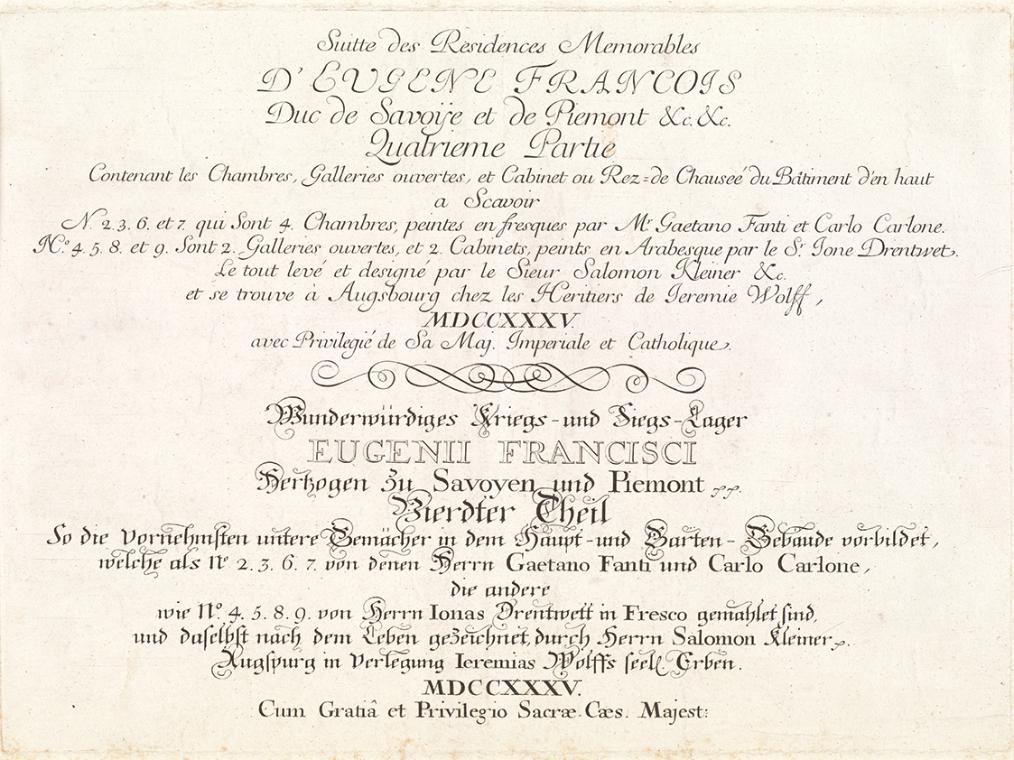 Suitte des Residences Memorables
D'EUGENE FRANCOIS
Duc de Savoÿe et de Piemont &c. &c.
Quatrieme Partie
Contenant les Chambres, Galleries ouvertes, et Cabinet ou Rez=de Chauseé du Bâtiment d'en haut
a Scavoir
N. 2. 3. 6. et 7. qui Sont 4. Chambres, peintes en fresques par Mr. Gaetano Fanti et Carlo Carlone.
No. 4. 5. 8. et 9. Sont 2. Galleries ouvertes, et 2. Cabinets, peints en Arabesque par le Sr. Ione Drentwet.
Le tout levé et designé par le Sieur Salomon Kleiner &c.
et se trouve à Augsbourg chez les Heritiers de Ieremie Wolff,
MDCCXXXV.
avec Privilegié de Sa Maj. Imperiale et Catholique.
Wunderwürdiges Kriegs-und Siegs-Lager
EUGENII FRANCISCI
Hertzogen zu Savoyen und Piemont
Vierdter Theil
So die vornehmsten untere Gemächer in dem Haupt-und Garten-Gebäude vorbildet,
welche als No 2. 3. 6. 7. von denen Herrn Gaetano Fanti und Carlo Carlone,
die andere
wie No. 4. 5. 8. 9. von Herrn Ionas Drentwett in Fresco gemahlet sind,
und daselbst nach dem Leben gezeichnet, durch Herrn Salomon Kleiner
Augspurg in Verlegung Ieremias Wolffs seel. Erben.
MDCCXXXV.
Cum Gratiâ et Privilegio Sacræ Cæs. Majest: